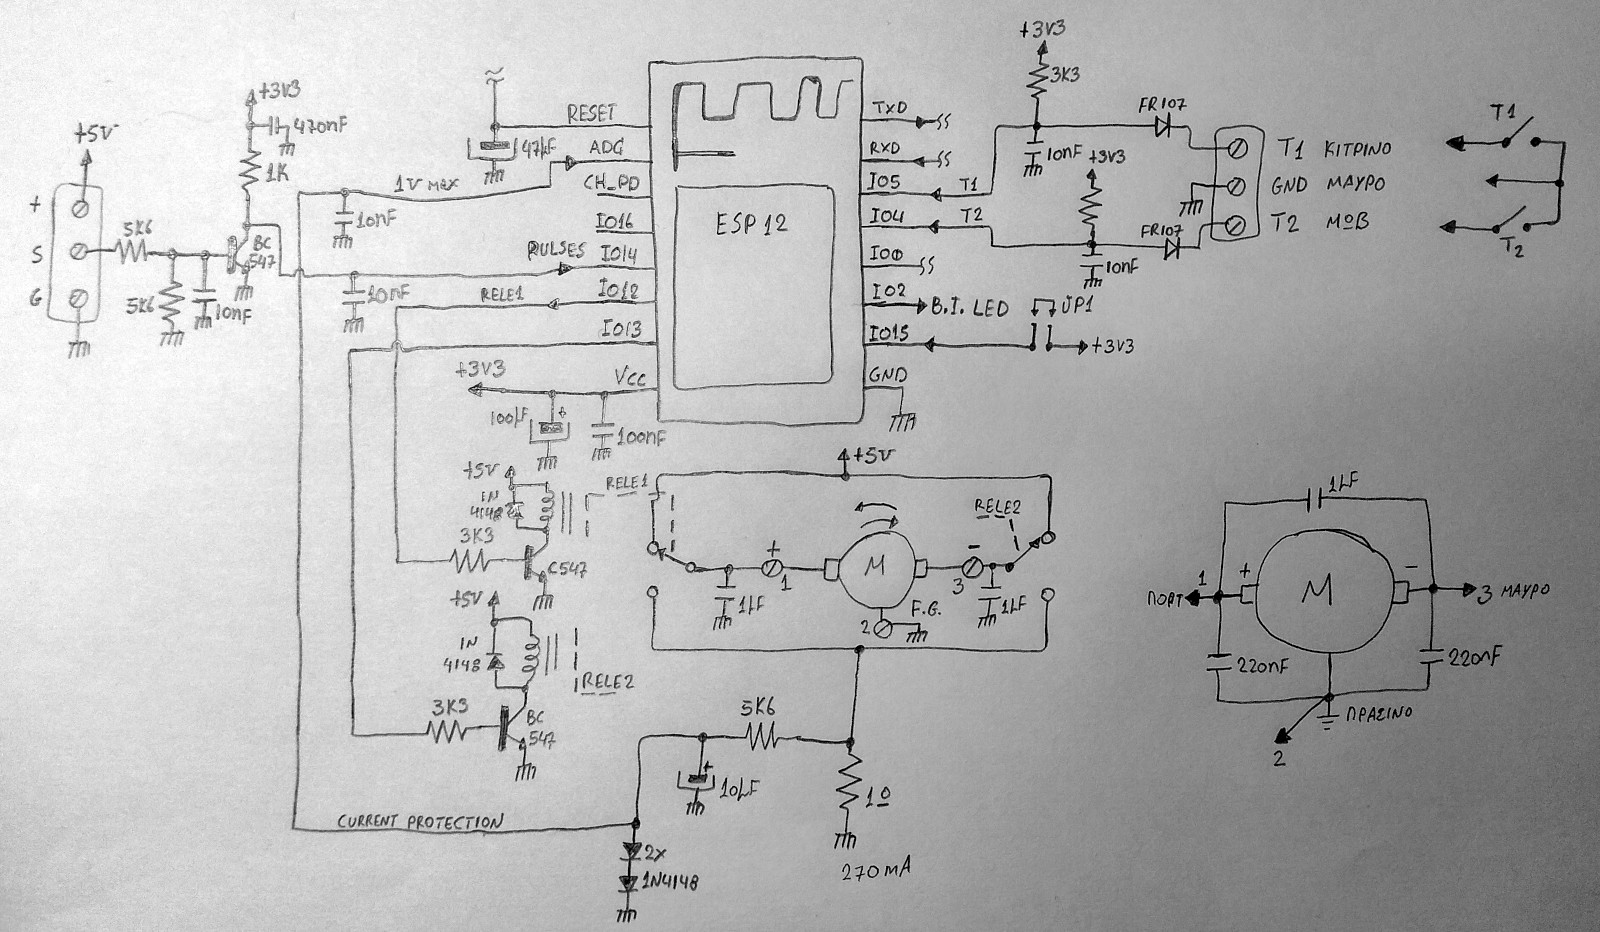 +3V3
470nF
+5V
1K
+
S
G
5K6
5K6
10nF
BC
547
RESET
47μF
ADC
1V MAX
CH_PD
10nF
IO16
PULSES
IO14
10nF
RELE1
IO12
IO13
+3V3
VCC
100μF
+
100nF
ESP12
TXD
RXD
IO5
T1
IO4
T2
IO0
IO2
B.I. LED
JP1
IO15
+3V3
GND
+3V3
3K3
10nF
+3V3
10nF
FR107
FR107
T1 ΚΙΤΡΙΝΟ
GND ΜΑΥΡΟ
T2 ΜΩΒ
T1
T2
+5V
1N
4148
RELE1
3K3
C547
+5V
1N
4148
RELE2
3K3
BC
547
+5V
RELE2
+
1
M
-
3
1μF
1μF
2
F.G.
5K6
+
10μF
1Ω
270mA
CURRENT PROTECTION
2x
1N4148
1μF
ΠΟΡΤ
1
+
M
-
3 ΜΑΥΡΟ
220nF
220nF
ΠΡΑΣΙΝΟ
2